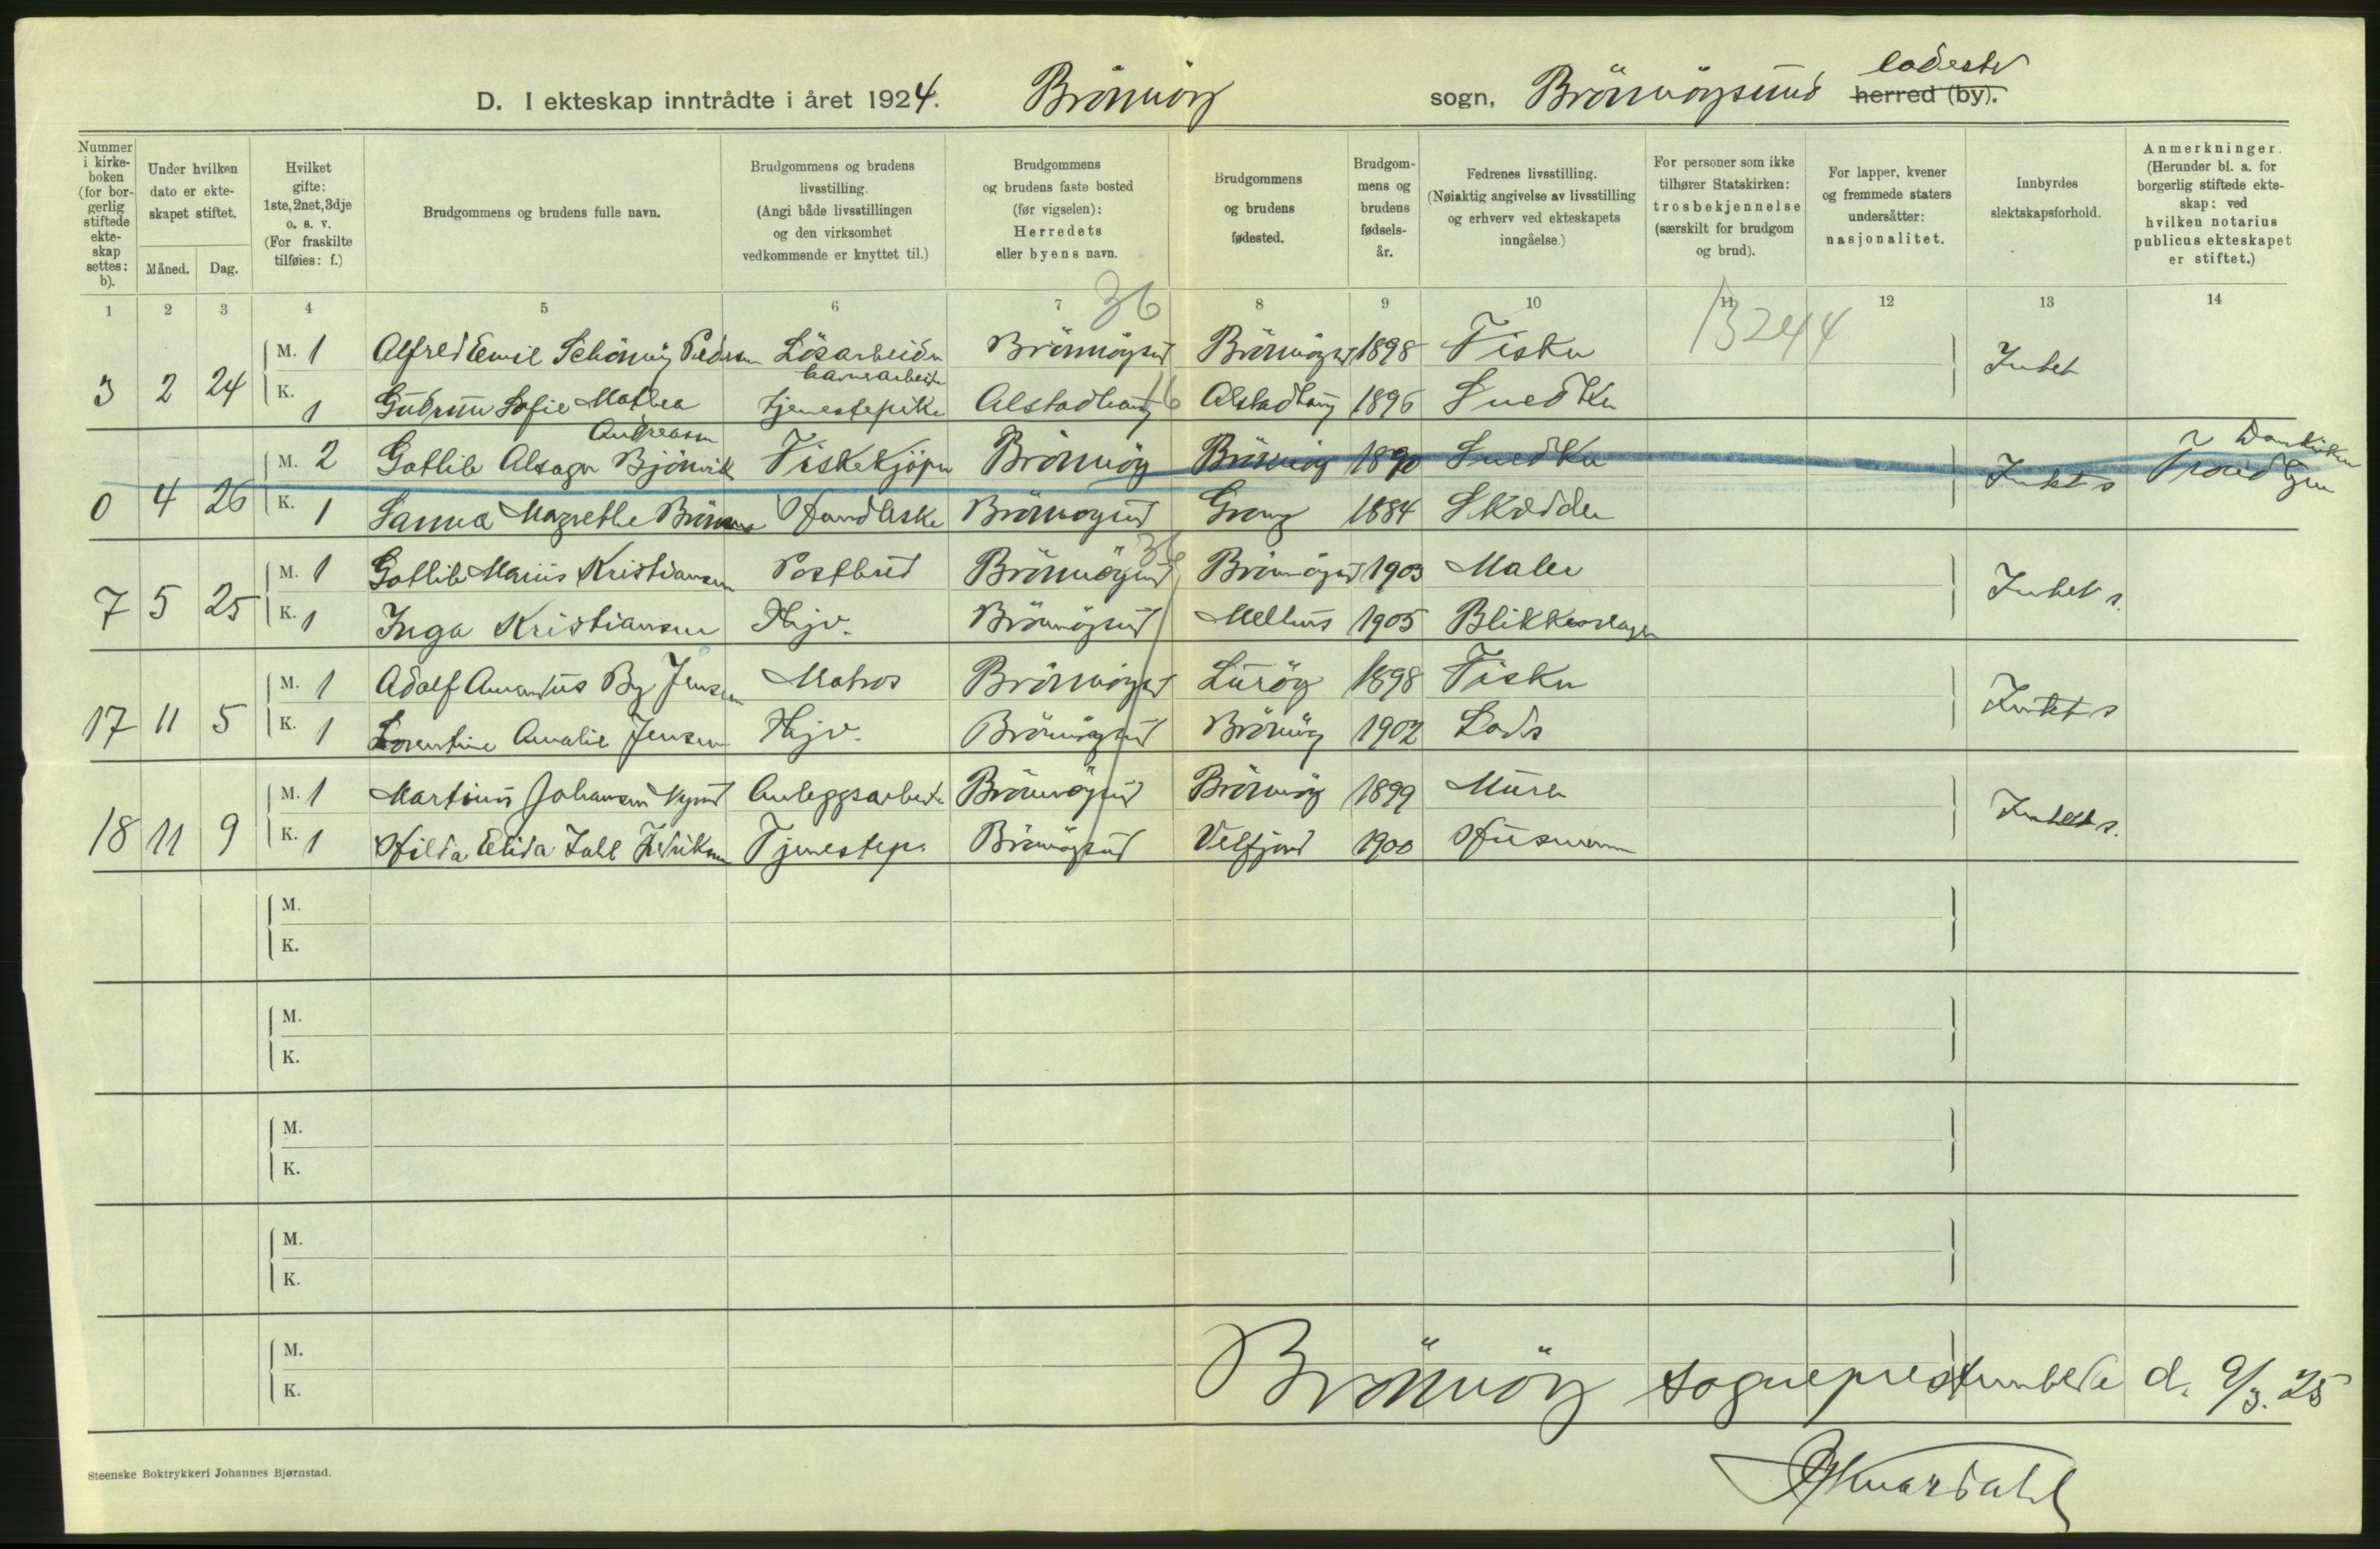 D. I ekteskap inntrådte i året 1924. Brönnöy sogn, Brönnöysund ladested herred (by).
Nummer i kirkeboken (for borgerlig stiftede ekteskap settes: b).
Under hvilken dato er ekteskapet stiftet.
Måned. Dag.
Hvilket gifte: 1ste, 2net, 3dje o. s. v. (For fraskilte tilføies: f.)
Brudgommens og brudens fulle navn.
Brudgommens og brudens livsstilling. (Angi både livsstillingen og den virksomhet vedkommende er knyttet til.)
Brudgommens og brudens faste bosted (før vigselen): Herredets eller byens navn.
Brudgommens og brudens fødested.
Brudgommens og brudens fødselsår.
Fedrenes livsstilling. (Nøiaktig angivelse av livsstilling og erhverv ved ekteskapets inngåelse.)
For personer som ikke tilhører Statskirken: trosbekjennelse (særskilt for brudgom og brud).
For lapper, kvener og fremmede staters undersåtter: nasjonalitet.
Innbyrdes slektskapsforhold.
Anmerkninger. (Herunder bl. a. for borgerlig stiftede ekteskap: ved hvilken notarius publicus ekteskapet er stiftet.)
1 2 3 4 5 6 7 8 9 10 11 12 13 14
36 13244
M. 1 Alfred Emil Schöning Pedersen Lösarbeider Brönnöysund Brönnöysund 1898 Fisker
havnearbeider
3 2 24 K. 1 Gudrun Sofie Mathea tjenestepike Alstadhaug 16 Alstadhaug 1896 Snedker Intet
Andreasen
M. 2 Gotlib Alsager Björnvik Fiskekjöper Brönnöy Brönnöy 1890 Snedker
0 4 26 K. 1 Sanna Magrethe Handleske Brönnöysund Grong 1884 Skredder Intet s
M. 1 Gotlib Marius Kristiansen Postbud Brönnöysund 36 Brönnöysund 1903 Maler
7 5 25 K. 1 Inga Kristiansen Hjv. Brönnöysund Melhus 1905 Blikkenslager Intet s.
M. 1 Adolf Amandus By Jensen Matros Brönnöysund Luröy 1898 Fisker
17 11 5 K. 1 Lorentine Amalie Jensen Hjv. Brönnöysund Brönnöy 1902 Lods Intet s
M. 1 Martinus Johansen Anleggsarbeider Brönnöysund Brönnöy 1899 Murer
18 11 9 K. 1 Hilda Elida Dahl Fredriksen Tjenestep. Brönnöysund Velfjord 1900 Husmann Intet s.
M.
K.
M.
K.
M.
K.
M.
K.
M.
K.
Brönnöy sogneprestembede d. 9/3. 25
Steenske Boktrykkeri Johannes Bjørnstad.